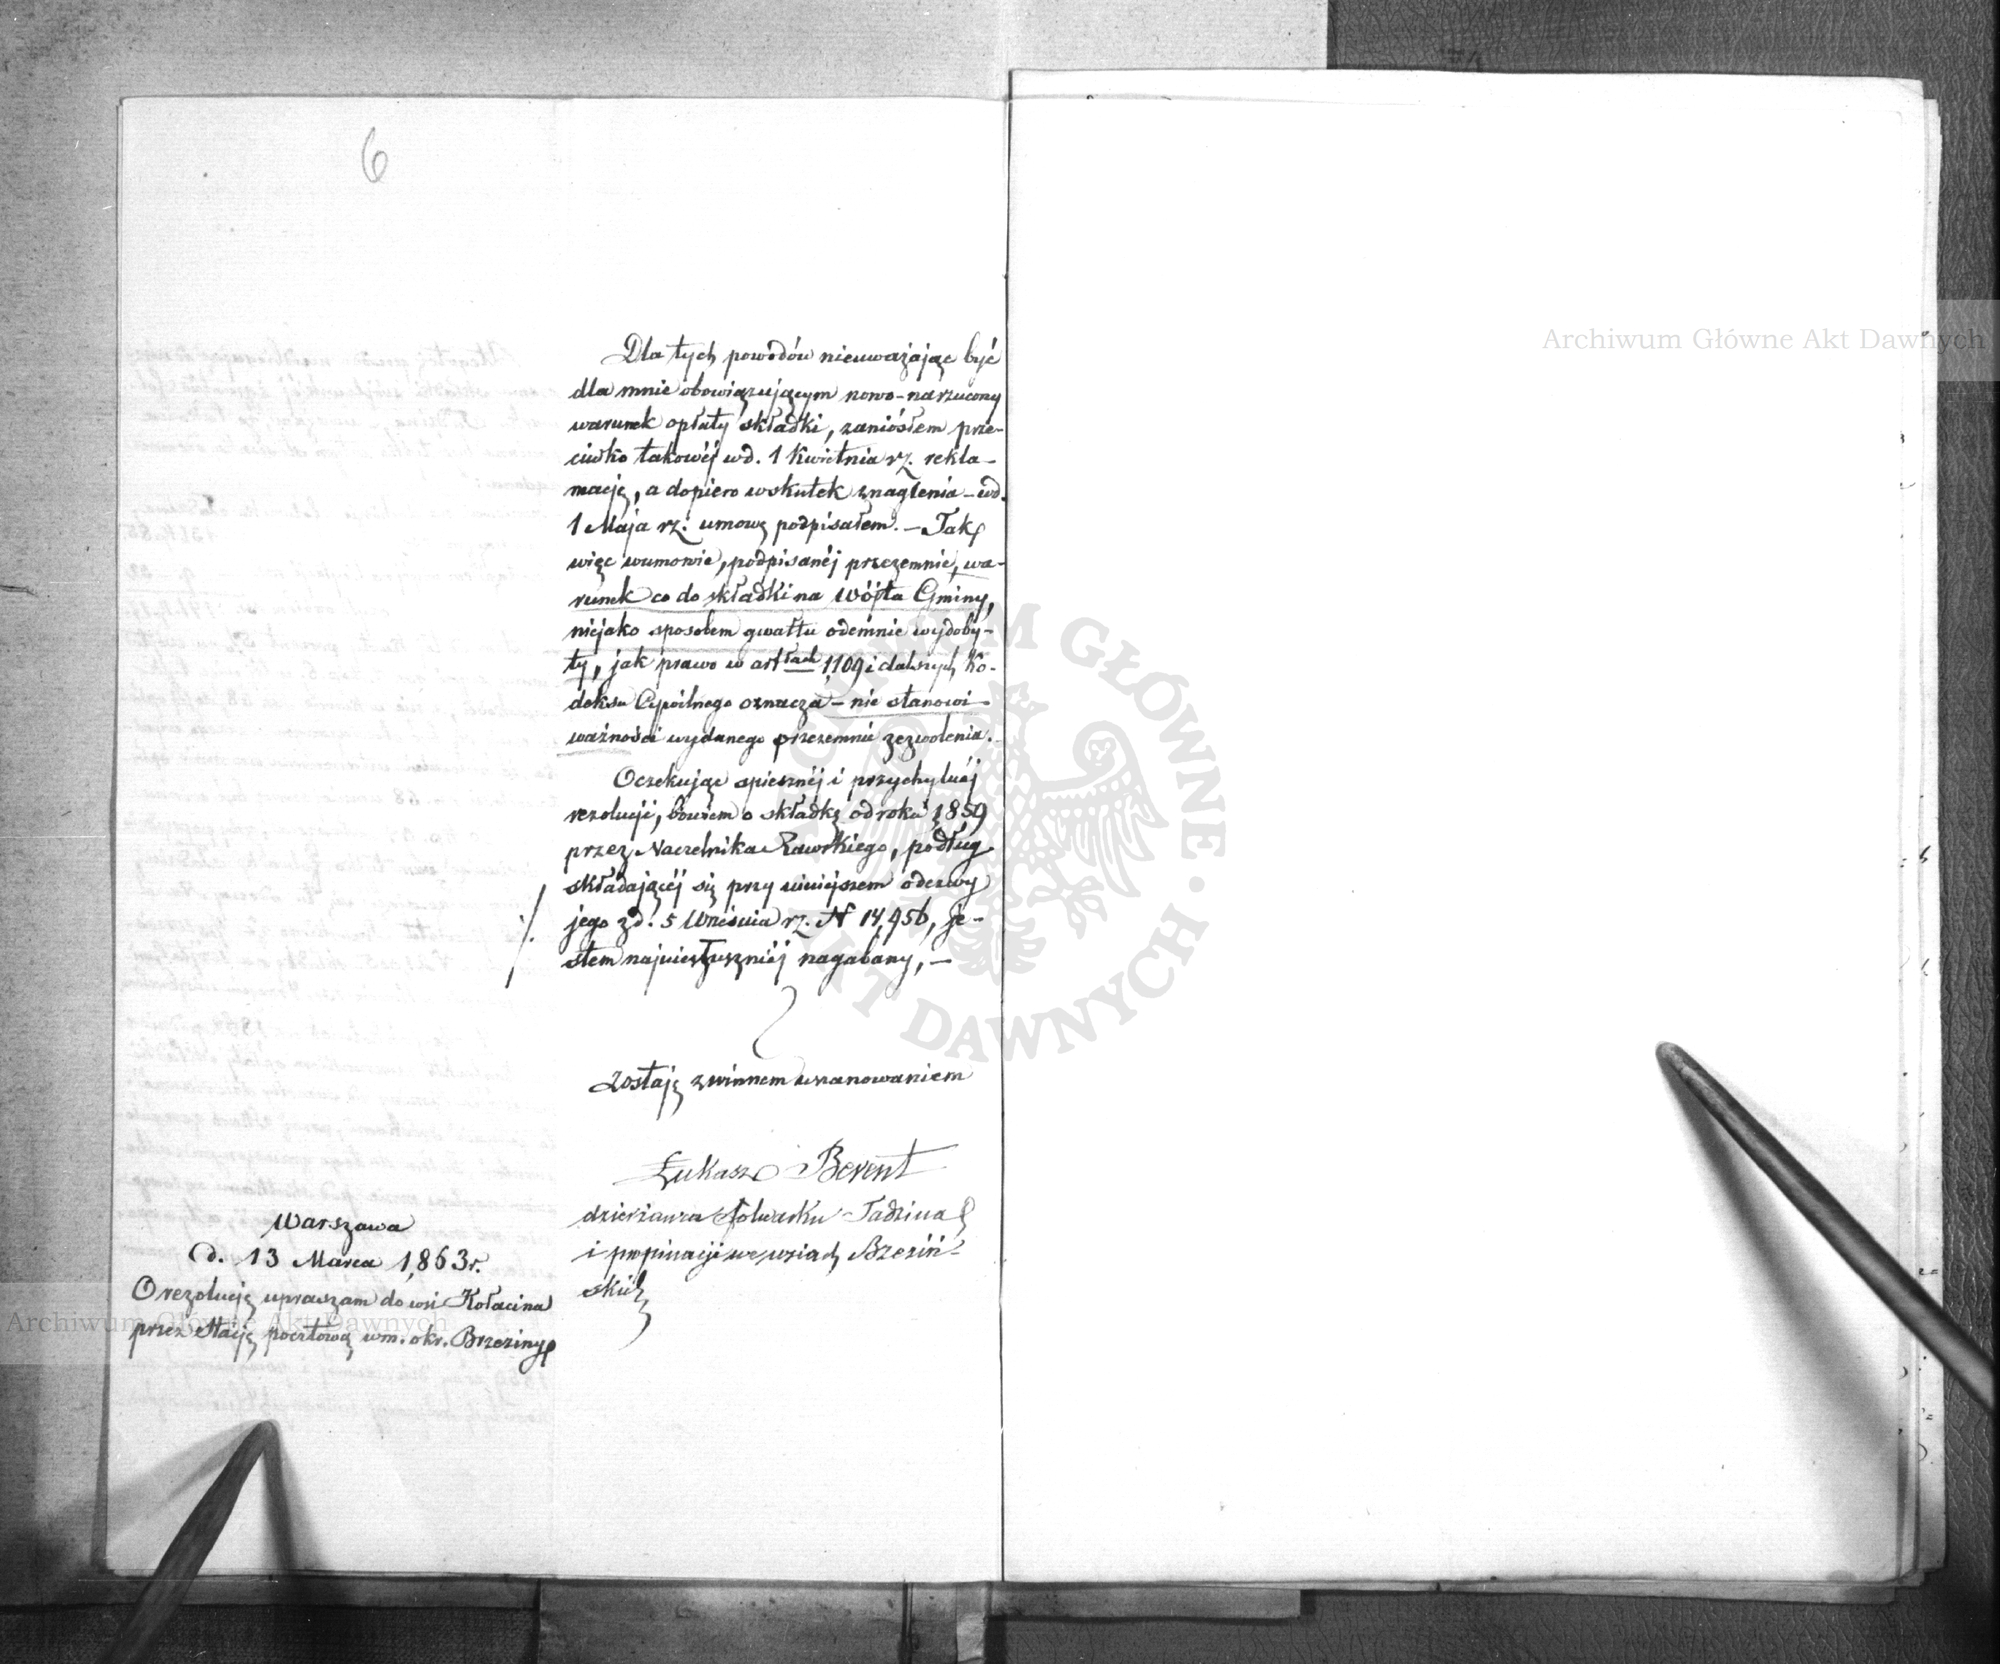 6
Dla tych powodów nieuważając być
dla mnie obowiązującym nowo-narzucony
warunek opłaty składki, zaniósłem prze-
ciwko takowéj w d. 1 Kwietnia rz. rekla-
macją, a dopiero wskutek znaglenia – w d.
1 Maja rz. umowę podpisałem. – Tak
więc w umowie, podpisanéj przezemnie, wa-
runek co do składki na Wójta Gminy,
niejako sposobem gwałtu odemnie wydoby-
ty, jak prawo w artłach 1109 i dalszych Ko-
deksu Cywilnego oznacza – nie stanowi
ważności wydanego przezemnie zezwolenia.
Oczekując spiesznéj i przychylnéj
rezolucji, bowiem o składkę od roku 1859
przez Naczelnika Rawskiego, podług
składającéj się przy niniejszem odezwy
jego z d. 5 Września rz. N 14,956, je-
stem najniesłuszniéj nagabany, –
Zostaję z winnem uszanowaniem
Łukasz Berent
dzierżawca folwarku Tadzina
i propinacji we wsiach Brzeziń-
skich
Warszawa
d. 13 Marca 1863 r.
O rezolucję upraszam do wsi Kołacina
przez Stację pocztową w m. okr. Brzeziny
Archiwum Główne Akt Dawnych
Archiwum Główne Akt Dawnych
ARCHIWUM GŁÓWNE AKT DAWNYCH